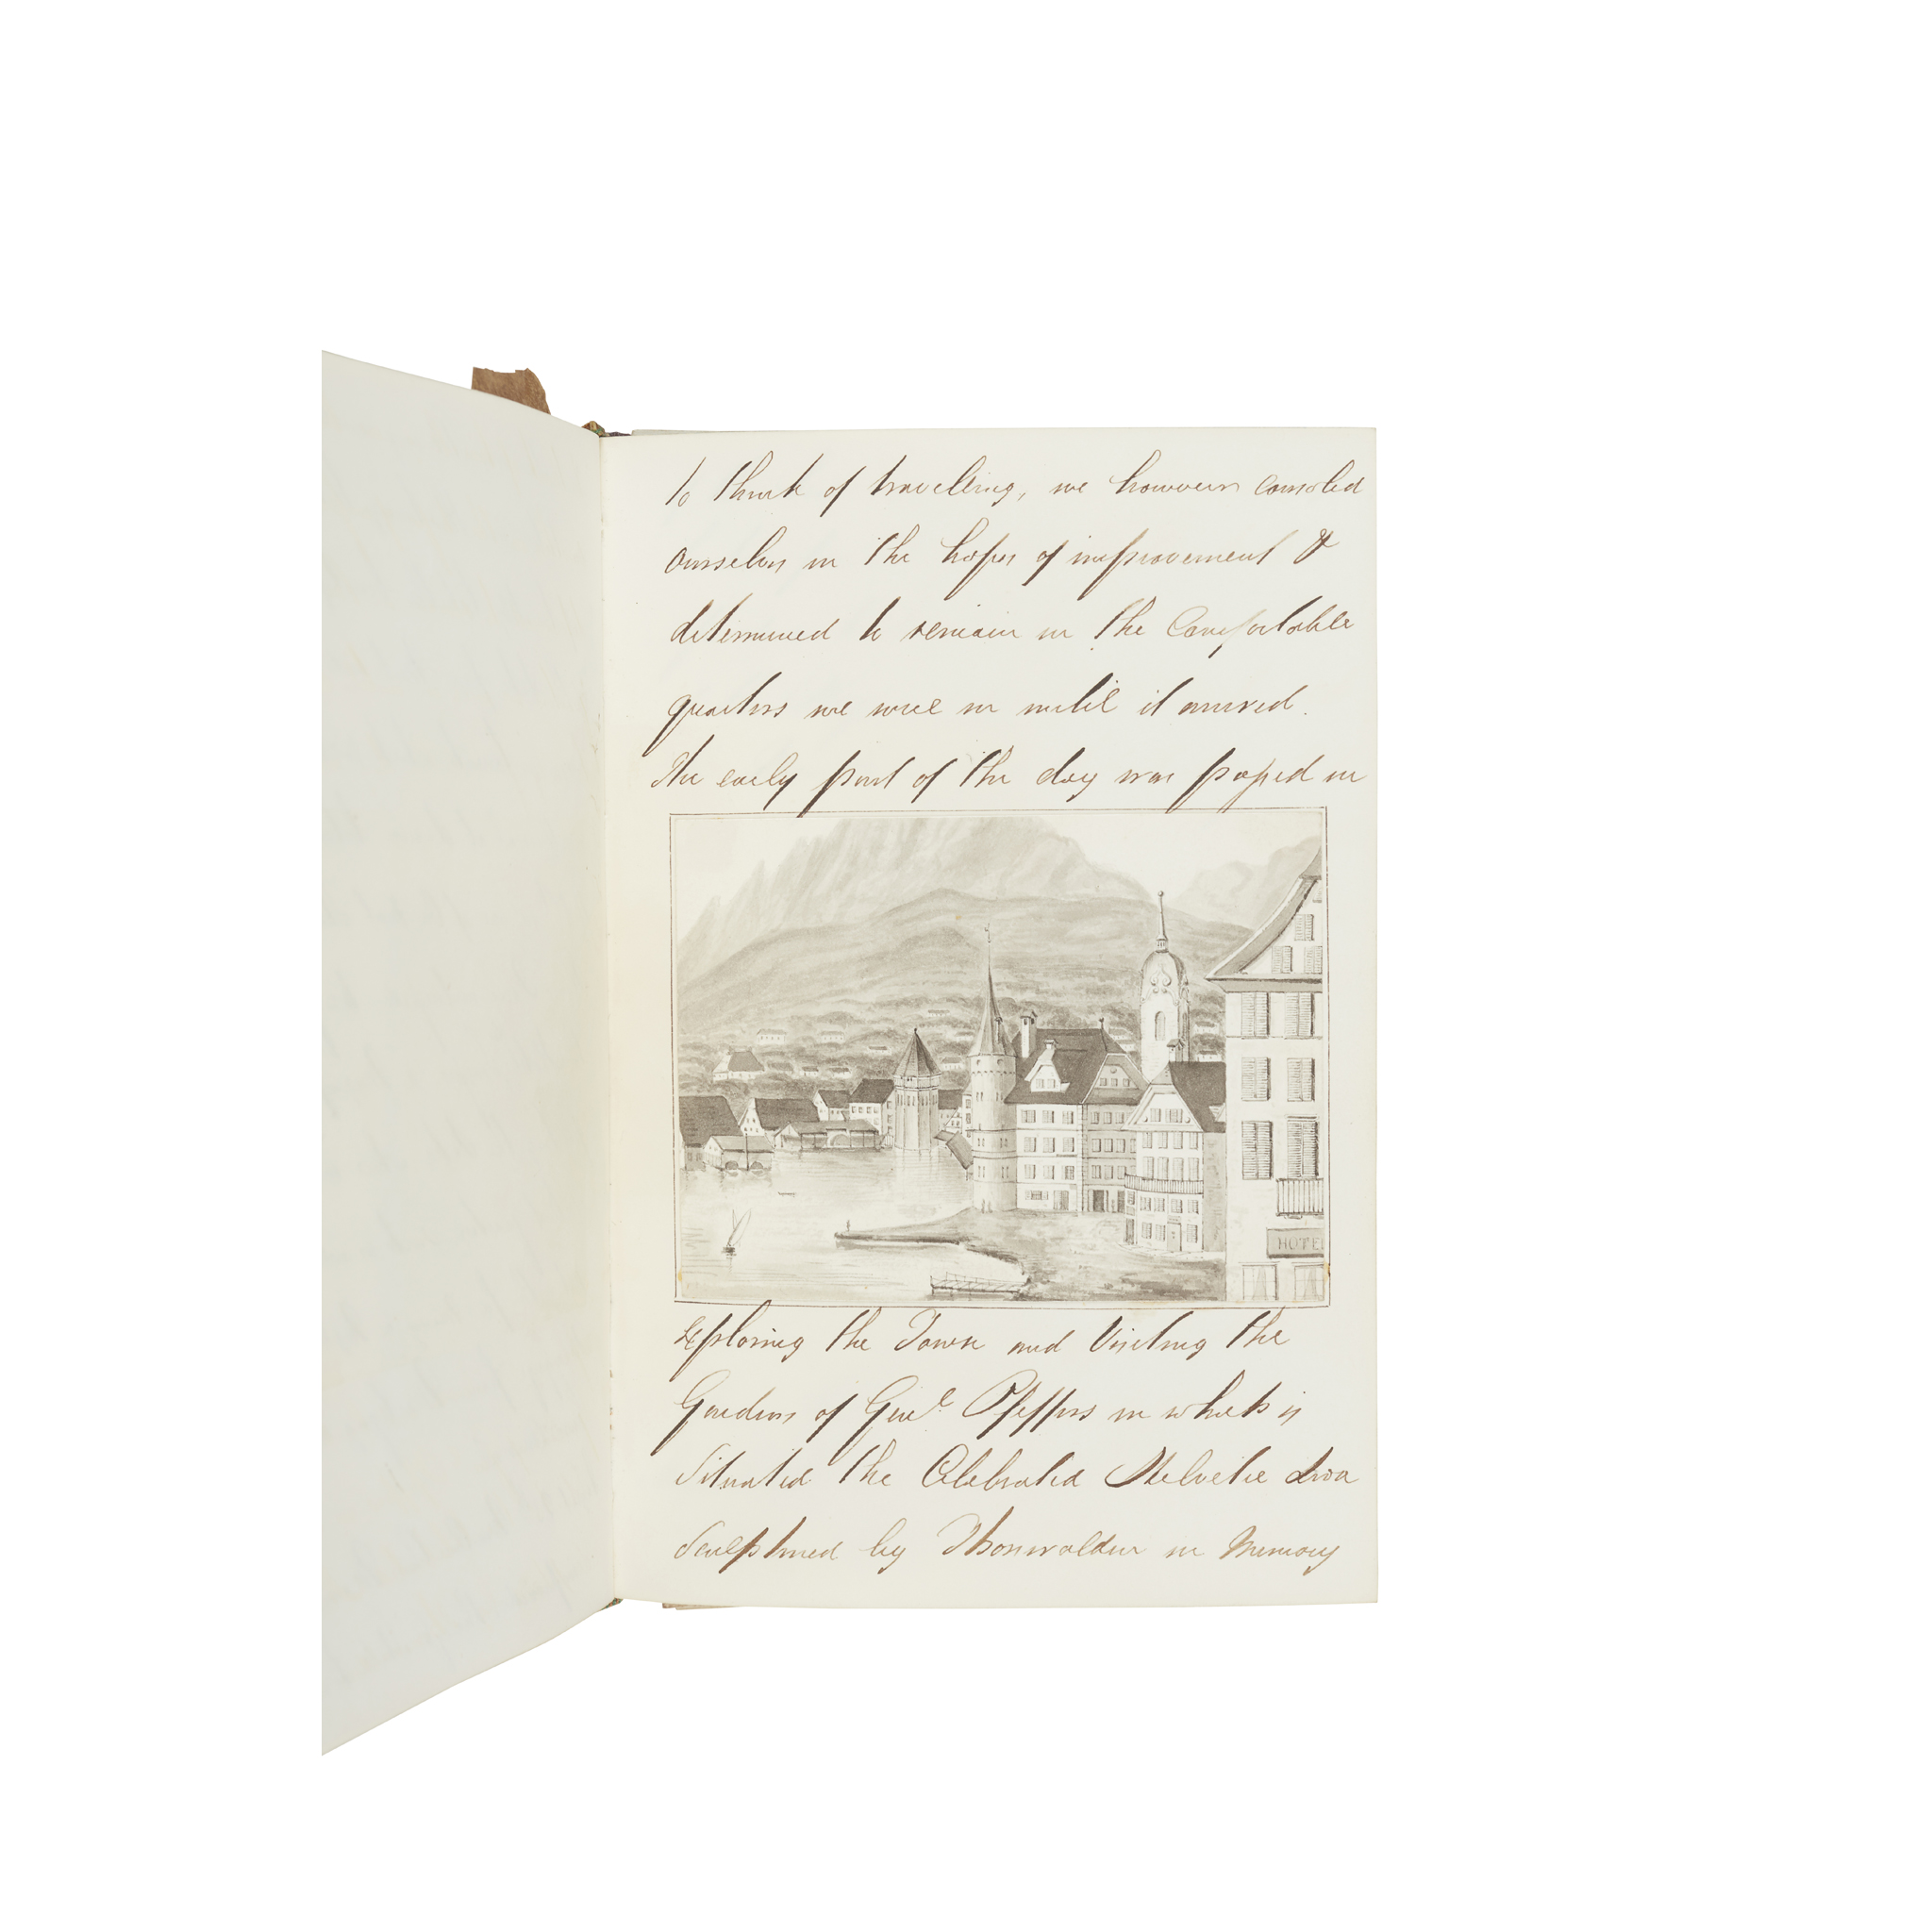 to think of travelling, we however consoled
ourselves in the hopes of improvement &
determined to remain in the Comfortable
quarters we were in until it arrived.
The early part of the day was passed in
HOTEL
exploring the Town and Visiting the
Gardens of Genl Pfeffers in which is
Situated the Celebrated Helvetie Lion
Sculptured by Thorwalden in Memory